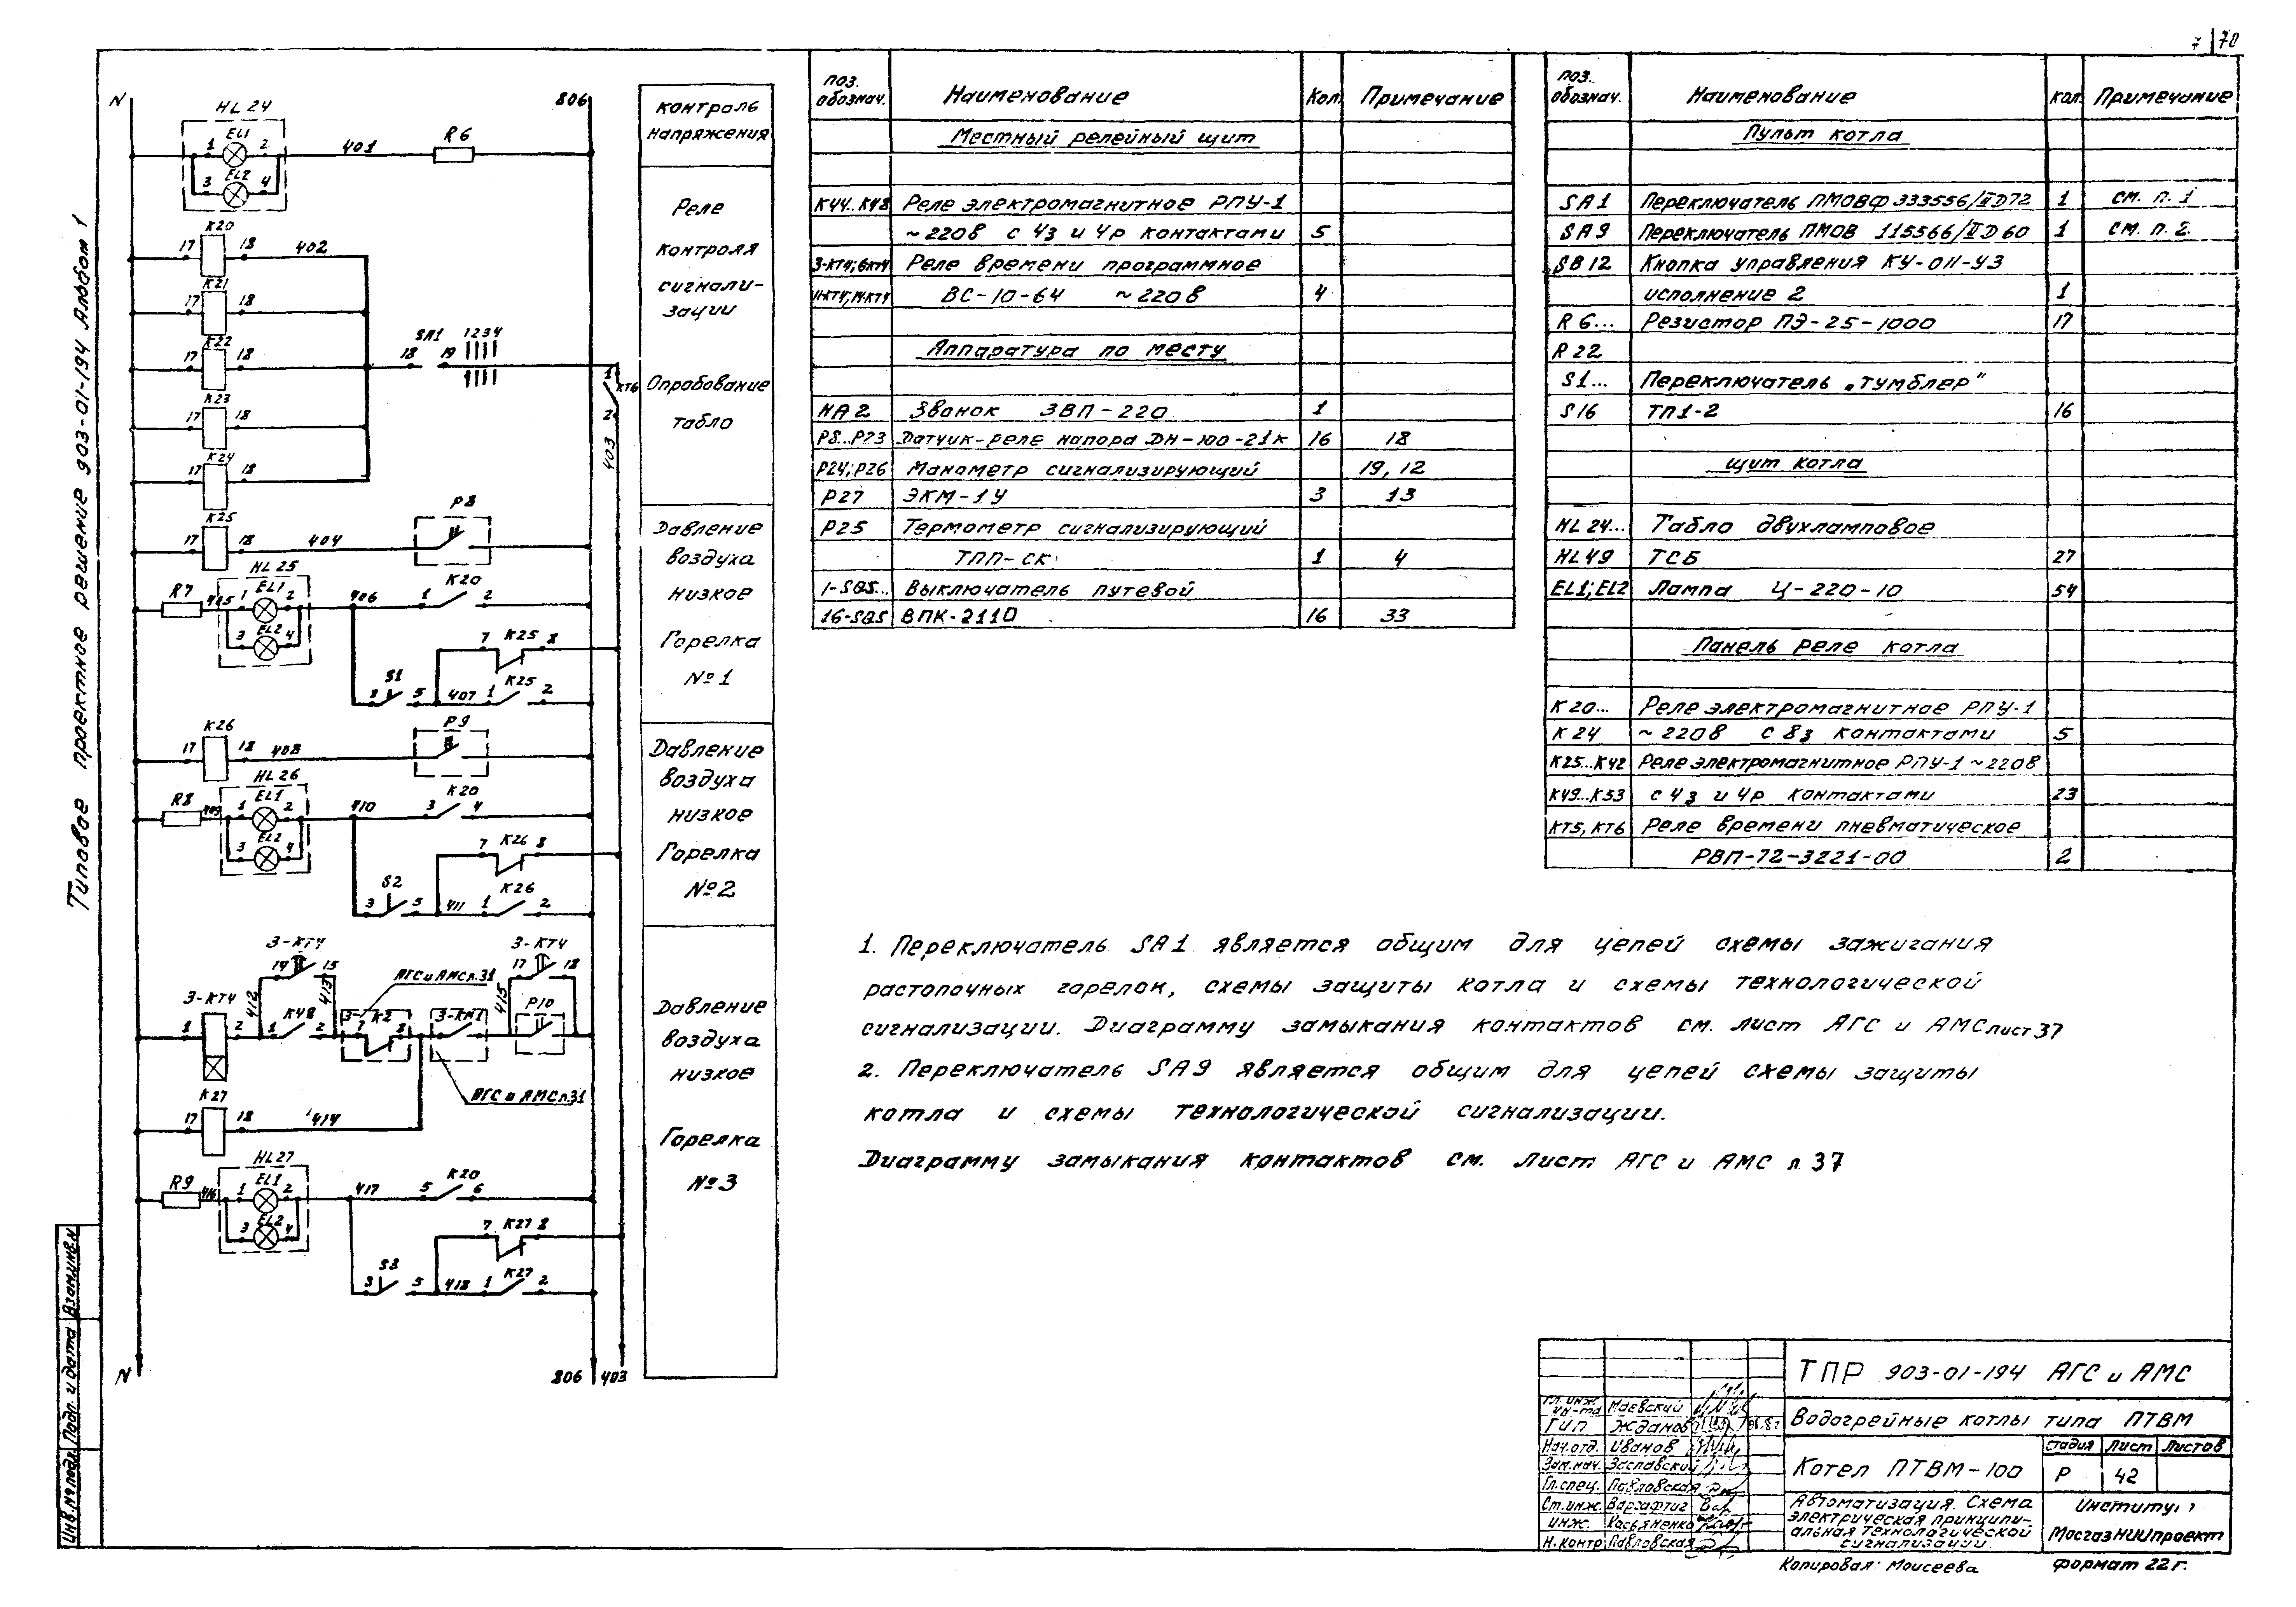 7 70
Типовое проектное решение 903-01-194 Альбом 1
N
806
HL 24
EL1
1 2
EL2
3 4
401
R6
контроль
напряжения
K20
17 18
402
K21
17 18
K22
17 18
SA1
18 19
1 2 3 4
K23
17 18
K24
17 18
1
КТ6
2
403
Реле
контроля
сигнали-
зации
Опробование
табло
K25
17 18
404
P8
HL 25
R7
405
EL1
1 2
EL2
3 4
406
K20
1 2
7 K25 8
S1
3 5
407
K25
1 2
Давление
воздуха
низкое
Горелка
№1
K26
17 18
408
P9
HL 26
R8
409
EL1
1 2
EL2
3 4
410
K20
3 4
7 K26 8
S2
3 5
411
K26
1 2
Давление
воздуха
низкое
Горелка
№2
3-КТ4
14 15
3-КТ4
17 18
АГС и АМС л.31
3-КТ4
1 2
412
K48
1 2
413
3-К2
7 8
3-КМ1
415
P10
АГС и АМС л.31
K27
17 18
414
HL 27
R9
416
EL1
1 2
EL2
3 4
417
K20
5 6
7 K27 8
S3
3 5
418
K27
1 2
Давление
воздуха
низкое
Горелка
№3
N
806 403
поз. обознач. Наименование Кол. Примечание
Местный релейный щит
К44..К48 Реле электромагнитное РПУ-1
~220в с 4з и 4р контактами 5
3-КТ4; 6КТ4 Реле времени программное
11-КТ4; 14-КТ4 ВС-10-64 ~220в 4
Аппаратура по месту
НА2 Звонок ЗВП-220 1
Р8...Р23 Датчик-реле напора ДН-100-21к 16 18
Р24; Р26 Манометр сигнализирующий 19, 12
Р27 ЭКМ-1У 3 13
Р25 Термометр сигнализирующий
ТПП-СК 1 4
1-SQ5... Выключатель путевой
16-SQ5 ВПК-2110 16 33
поз. обознач. Наименование кол. Примечание
Пульт котла
SA1 Переключатель ПМОВФ 333556/ⅡД72 1 см. п. 1
SA9 Переключатель ПМОВ 115566/ⅡД60 1 см. п. 2
SB12 Кнопка управления КУ-011-У3
исполнение 2 1
R6... Резистор ПЭ-25-1000 17
R22
S1... Переключатель „тумблер"
S16 ТП1-2 16
щит котла
HL24... Табло двухламповое
HL49 ТСБ 27
EL1; EL2 Лампа Ц-220-10 54
Панель реле котла
К20... Реле электромагнитное РПУ-1
К24 ~220в с 8з контактами 5
К25...К42 Реле электромагнитное РПУ-1 ~220в
К49...К53 с 4з и 4р контактами 23
КТ5, КТ6 Реле времени пневматическое
РВП-72-3221-00 2
1. Переключатель SA1 является общим для цепей схемы зажигания
растопочных горелок, схемы защиты котла и схемы технологической
сигнализации. Диаграмму замыкания контактов см. лист АГС и АМС лист 37
2. Переключатель SA9 является общим для цепей схемы защиты
котла и схемы технологической сигнализации.
Диаграмму замыкания контактов см. Лист АГС и АМС л. 37
Инв.№подл. Подп. и дата Взам.инв.N
ТПР 903-01-194 АГС и АМС
Гл. инж. ин-та Маевский
ГИП Жданов
Нач.отд. Иванов
Зам.нач. Заславский
Гл.спец. Павловская
Ст.инж. Варгафтиг
инж. Касьяненко
Н.контр Павловская
Водогрейные котлы типа ПТВМ
Котел ПТВМ-100
стадия Лист Листов
Р 42
Автоматизация. Схема
электрическая принципи-
альная технологической
сигнализации.
Институт
МосгазНИИпроект
Копировал: Моисеева формат 22г.